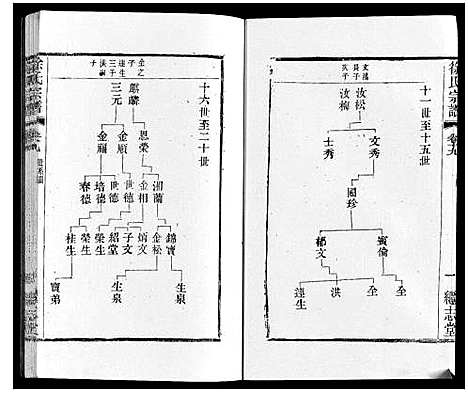 徐氏宗譜
卷九
一
繼志堂
十一世至十五世
汝松
汝梅
文秀
士秀
國珍
賓倫
郁文
全
全
洪
達生
十六世至二十世
麒麟
三元
恩榮
金順
金福
湘蘭
金相
世德
培德
春德
錦寶
金松
炳文
子文
紹堂
榮生
榮生
桂生
生泉
生泉
寶弟
徐氏宗譜
卷九